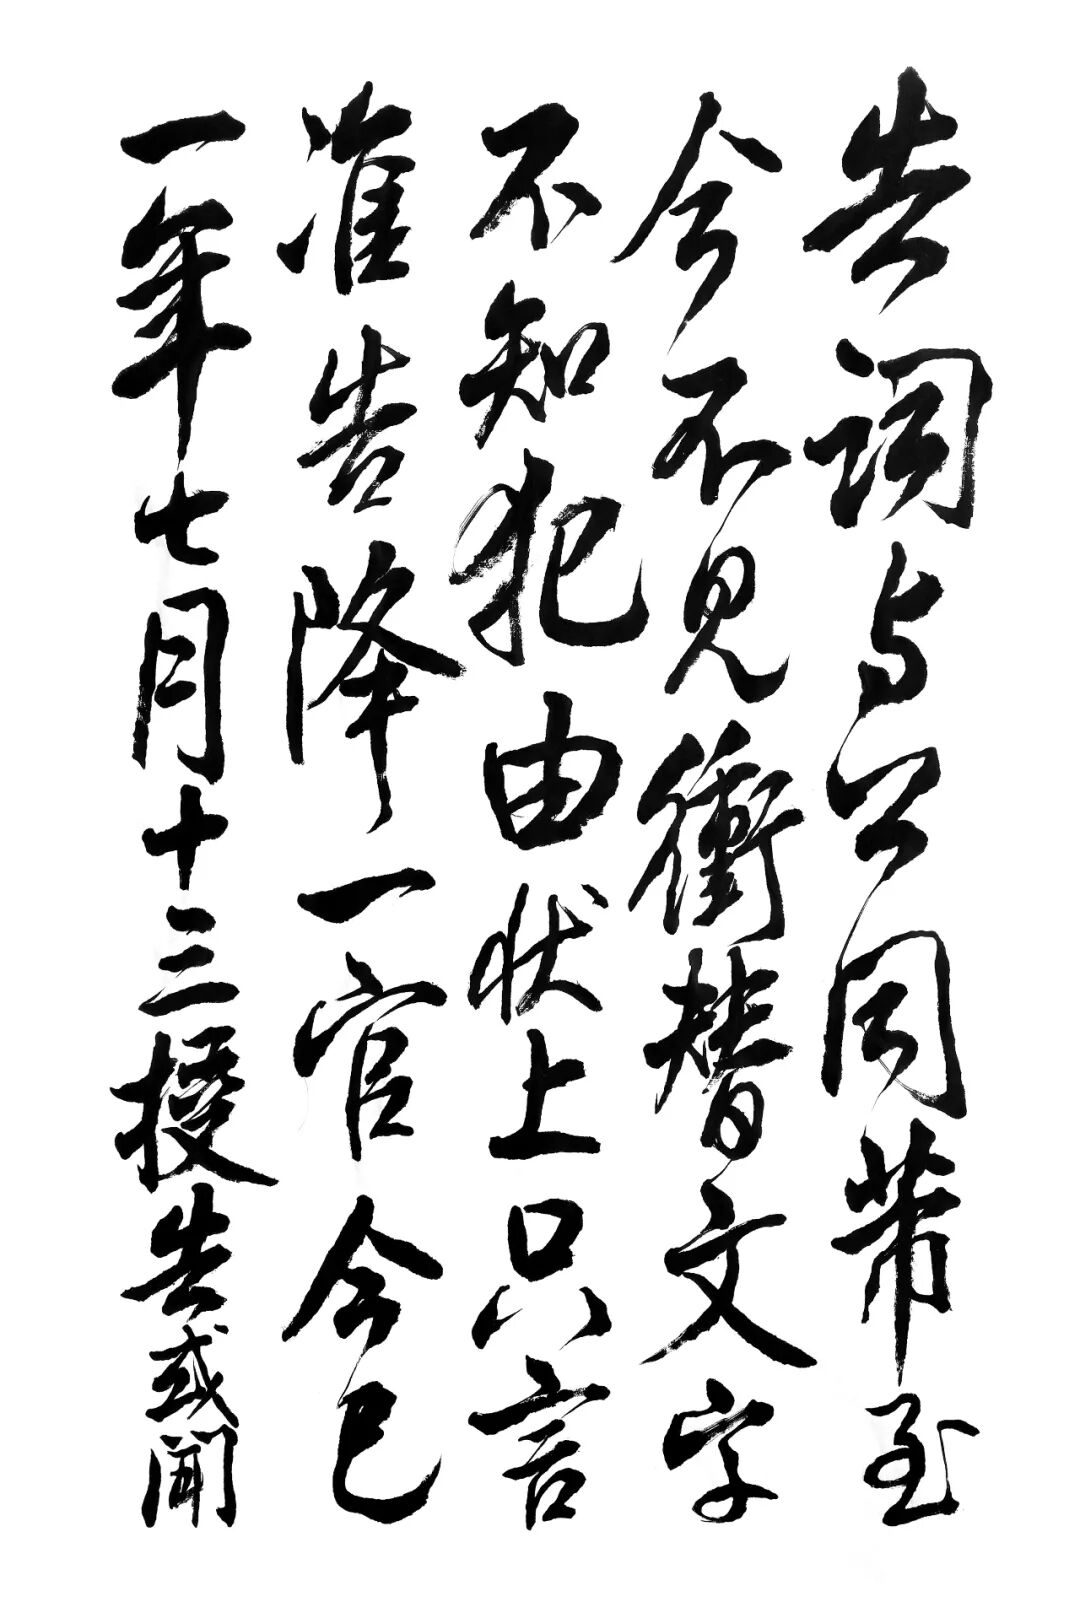 告词与公同带至
今不见衝替文字
不知犯由状上只言
准告降一官今已
一年七月十三授告或闻